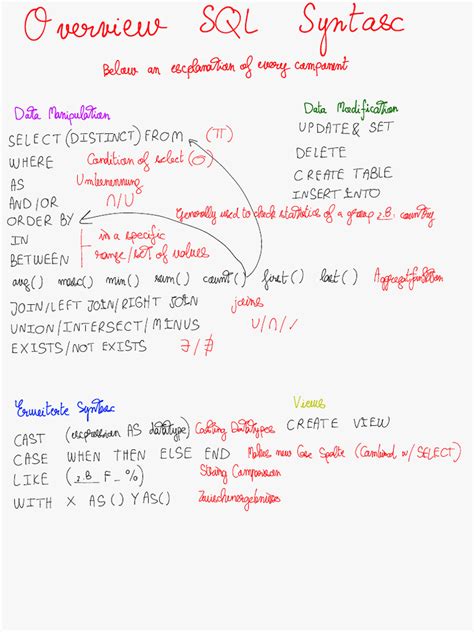 Overview SQL Syntax
Below an explanation of every component
Data Manipulation
SELECT (DISTINCT) FROM (π)
WHERE Condition of select (σ)
AS Umbenennung
AND/OR ∩/∪
ORDER BY Generally used to check statistics of a group z.B. country
IN in a specific
BETWEEN range/set of values
avg() max() min() sum() count() first() last() Aggregatfunktion
JOIN/LEFT JOIN/RIGHT JOIN joins
UNION/INTERSECT/MINUS ∪/∩/
EXISTS/NOT EXISTS ∃/∄
Data Modification
UPDATE & SET
DELETE
CREATE TABLE
INSERT INTO
Erweiterte Syntax
CAST (expression AS datatype) Casting Datatypes
CASE WHEN THEN ELSE END Makes new Case Spalte (Combined w/ SELECT)
LIKE (z.B _ F _ %) String Comparison
WITH X AS () Y AS () Zwischenergebnisse
Views
CREATE VIEW